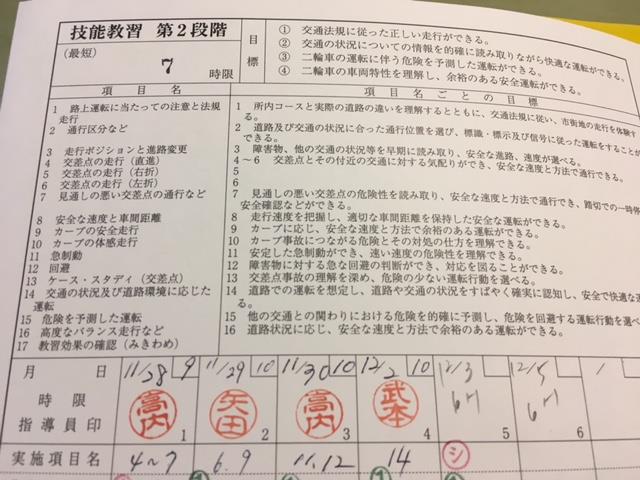 技能教習 第2段階
(最短)
7
時限
目標
① 交通法規に従った正しい走行ができる。
② 交通の状況についての情報を的確に読み取りながら快適な運転ができる。
③ 二輪車の運転に伴う危険を予測した運転ができる。
④ 二輪車の車両特性を理解し、余裕のある安全運転ができる。
項目名
項目名ごとの目標
1 路上運転に当たっての注意と法規走行
2 通行区分など
3 走行ポジションと進路変更
4 交差点の走行(直進)
5 交差点の走行(右折)
6 交差点の走行(左折)
7 見通しの悪い交差点の通行など
8 安全な速度と車間距離
9 カーブの安全走行
10 カーブの体感走行
11 急制動
12 回避
13 ケース・スタディ(交差点)
14 交通の状況及び道路環境に応じた
運転
15 危険を予測した運転
16 高度なバランス走行など
17 教習効果の確認(みきわめ)
1 所内コースと実際の道路の違いを理解するとともに、交通法規に従い、市街地の走行を体験す
る。
2 道路及び交通の状況に合った通行位置を選び、標識・標示及び信号に従った運転をすることが
できる。
3 障害物、他の交通の状況等を早期に読み取り、安全な進路、速度が選べる。
4~6 交差点とその付近の交通に対する気配りができ、安全な速度と方法で通行できる。
5
6
7 見通しの悪い交差点の危険性を読み取り、安全な速度と方法で通行でき、踏切での一時停
安全確認などができる。
8 走行速度を把握し、適切な車間距離を保持した安全な運転ができる。
9 カーブに応じ、安全な速度と方法で余裕のある運転ができる。
10 カーブ事故につながる危険とその対処の仕方を理解できる。
11 安定した急制動ができ、速い速度の危険性を理解できる。
12 障害物に対する急な回避の判断ができ、対応を図ることができる。
13 交差点事故の理解を深め、危険の少ない運転行動を選べる。
14 道路での運転を想定し、道路や交通の状況をすばやく確実に認知し、安全で快適な
る。
15 他の交通との関わりにおける危険を的確に予測し、危険を回避する運転行動を選べ
16 道路状況に応じ、安全な速度と方法で余裕のある運転ができる。
月 日 11/28 9 11/29 10 11/30 10 12/2 10 12/3 12/5 /
時限
指導員印
高内 1 矢田 2 高内 3 武本 4 5 6
実施項目名 4~7 6.9 11.12 14 シ